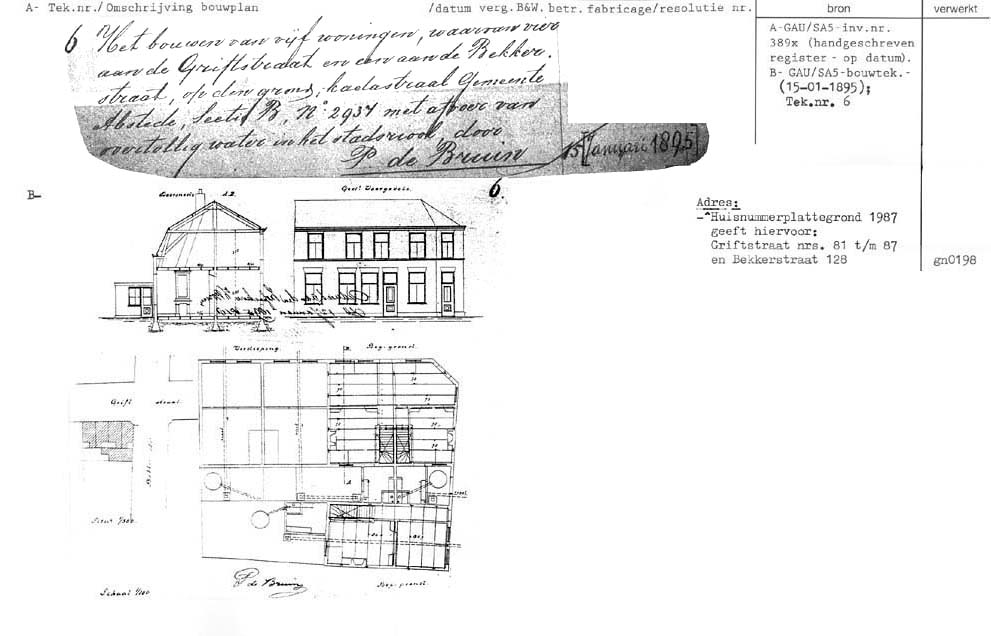 A- Tek.nr./Omschrijving bouwplan /datum verg.B&W.betr.fabricage/resolutie nr. bron verwerkt
6 Het bouwen van vijf woningen, waarvan vier
aan de Griftstraat en een aan de Bekker-
straat, op den grond, kadastraal Gemeente
Abstede, Sectie B, No. 2937 met afvoer van
overtollig water in het stadsriool, door
P. de Bruin 15 [Januari 1895]
A-GAU/SA5-inv.nr.
389x (handgeschreven
register - op datum).
B- GAU/SA5-bouwtek.-
(15-01-1895);
Tek.nr. 6
B-
Doorsnede A.B.
Gevel Voorgevels.
6.
Adres:
-^Huisnummerplattegrond 1987
geeft hiervoor:
Griftstraat nrs. 81 t/m 87
en Bekkerstraat 128
gn0198
Verdieping.
Beg. grond.
Grift straat
A
Schaal 1/100
P de Bruin
Beg. grond.